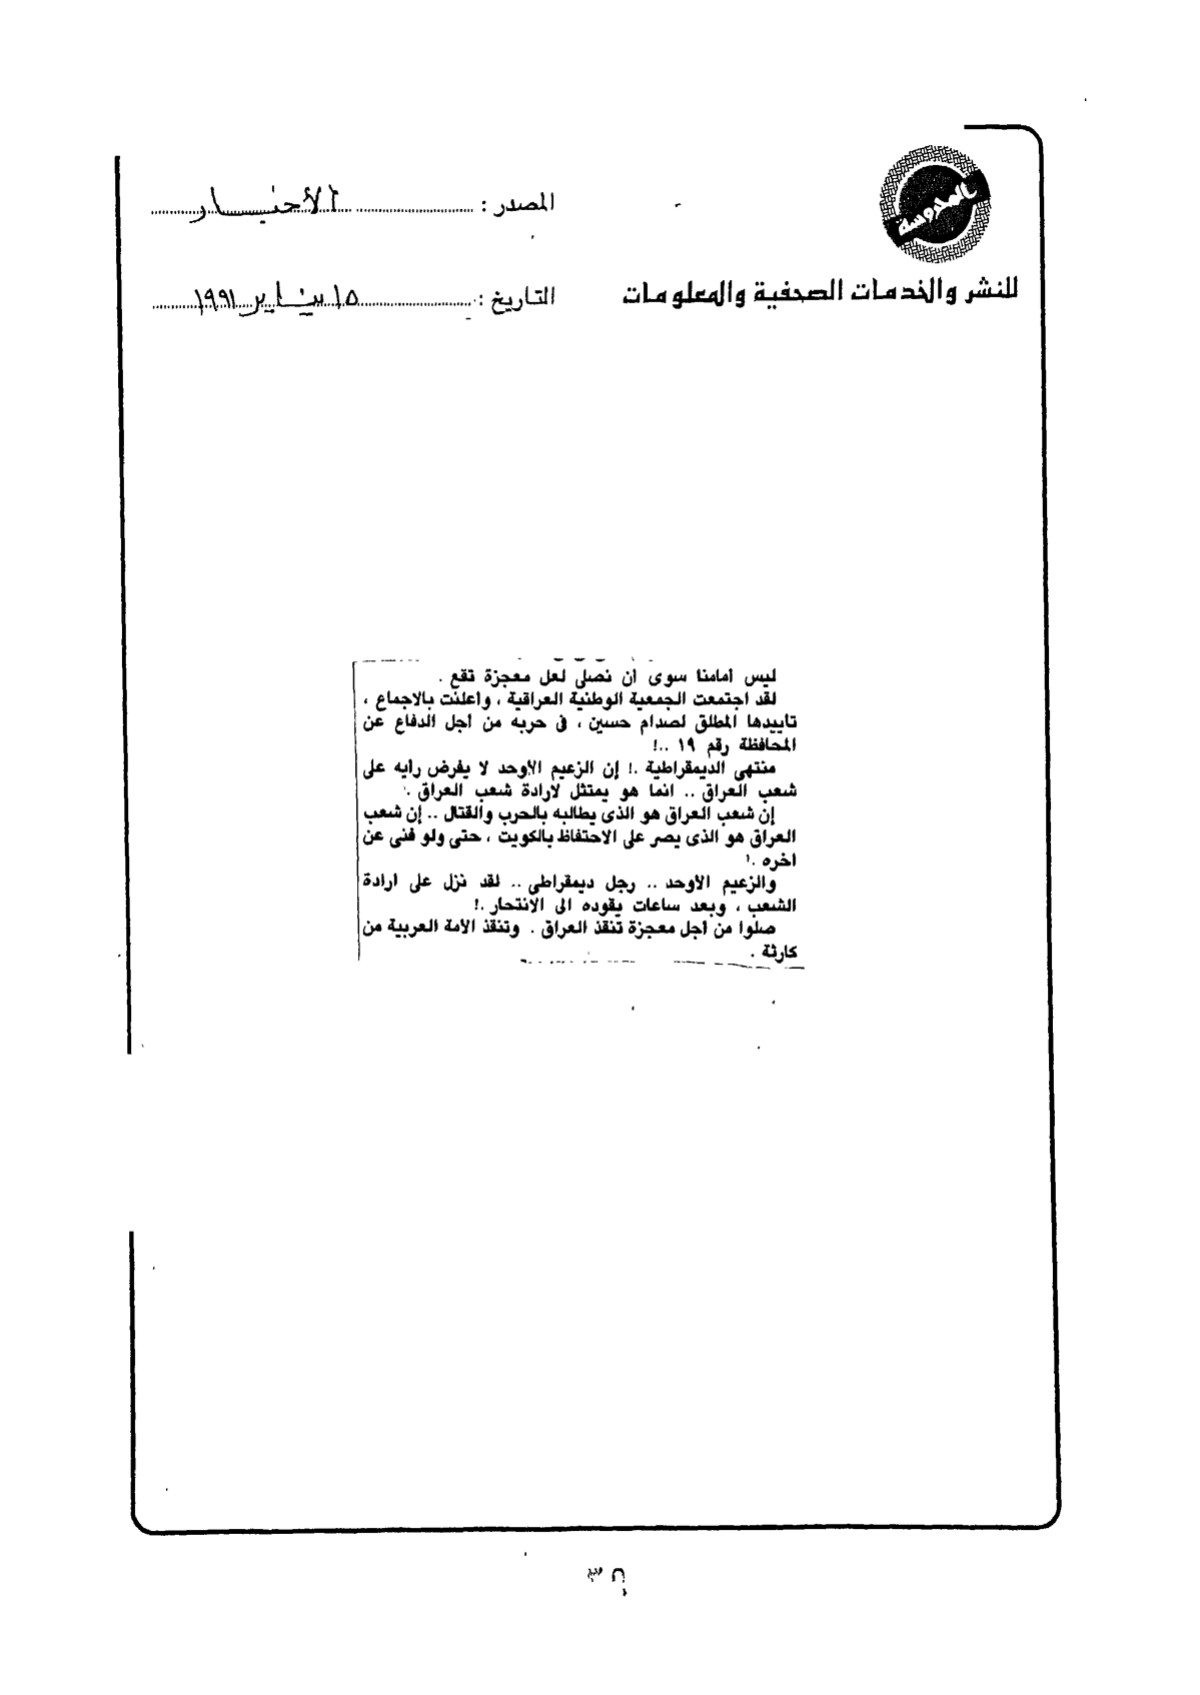 المحروسة
للنشر والخدمات الصحفية والمعلومات
المصدر : الأخبار
التاريخ : ١٥ يناير ١٩٩١
ليس امامنا سوى ان نصلى لعل معجزة تقع .
لقد اجتمعت الجمعية الوطنية العراقية ، واعلنت بالاجماع ،
تاييدها المطلق لصدام حسين ، فى حربه من اجل الدفاع عن
المحافظة رقم ١٩ ..!
منتهى الديمقراطية .! إن الزعيم الاوحد لا يفرض رايه على
شعب العراق .. انما هو يمتثل لارادة شعب العراق .
إن شعب العراق هو الذى يطالبه بالحرب والقتال .. إن شعب
العراق هو الذى يصر على الاحتفاظ بالكويت ، حتى ولو فنى عن
اخره .!
والزعيم الاوحد .. رجل ديمقراطى .. لقد نزل على ارادة
الشعب ، وبعد ساعات يقوده الى الانتحار .!
صلوا من اجل معجزة تنقذ العراق . وتنقذ الامة العربية من
كارثة .